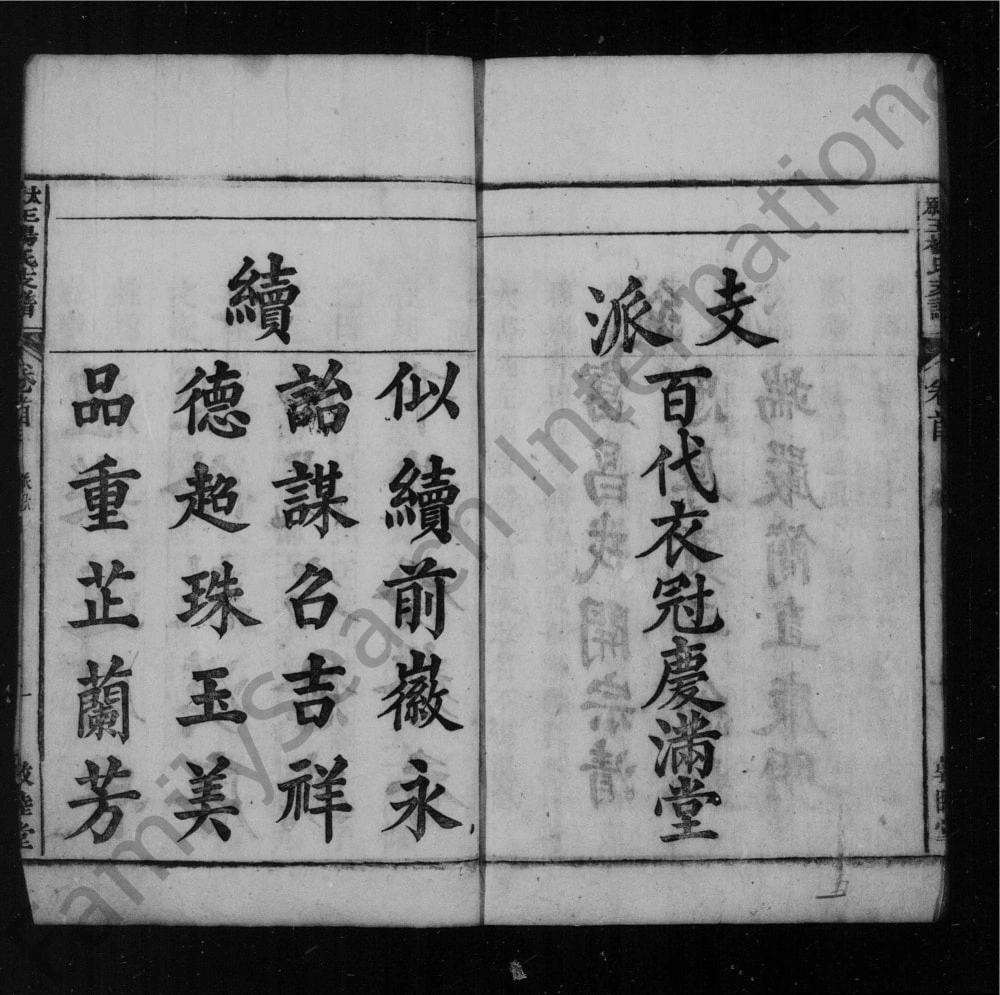 支派
百代衣冠慶滿堂
續
似續前徽永
詒謀名吉祥
德超珠玉美
品重芷蘭芳
卷首
敦睦堂
FamilySearch International